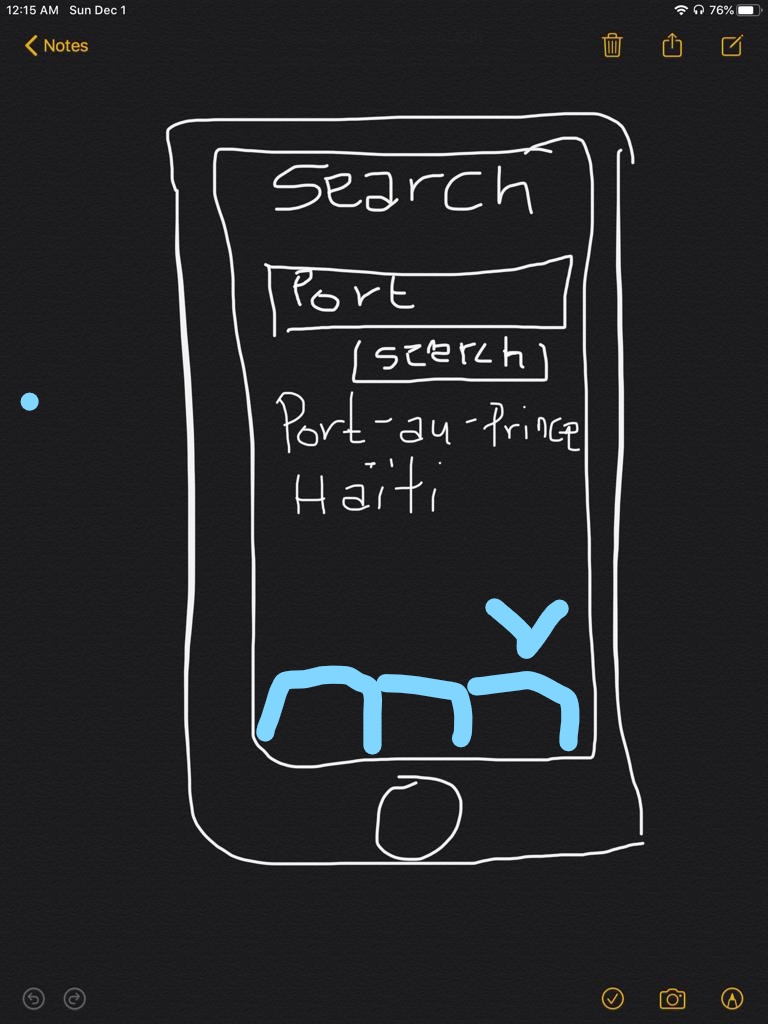 12:15 AM Sun Dec 1 76%
Notes
Search
Port
search
Port-au-Prince
Haïti